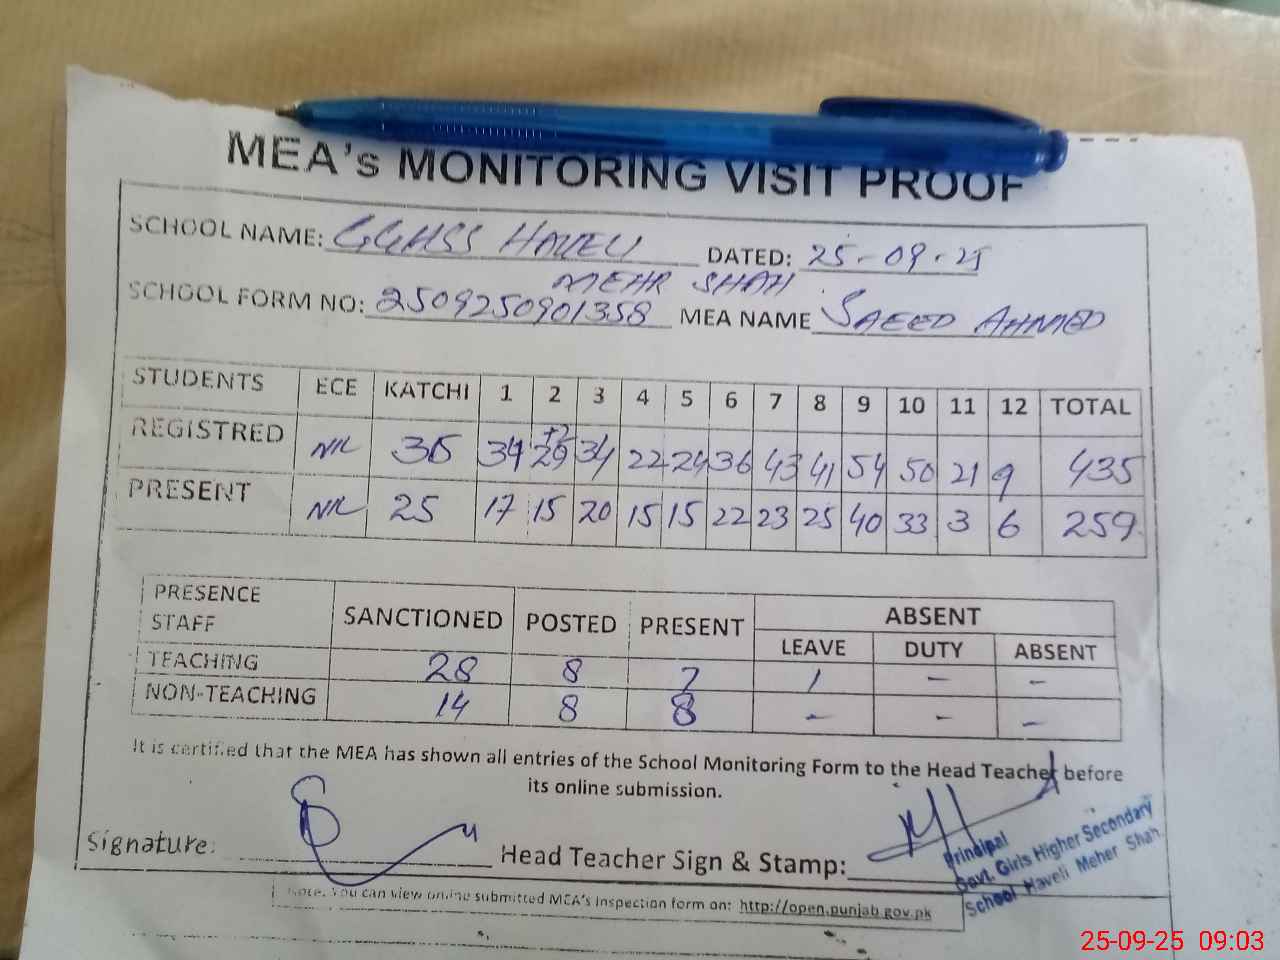 MEA's MONITORING VISIT PROOF
SCHOOL NAME: GGHSS HAVELI DATED: 25-09-25
MEHR SHAH
SCHOOL FORM NO: 2509250901358 MEA NAME SAEED AHMED
STUDENTS ECE KATCHI 1 2 3 4 5 6 7 8 9 10 11 12 TOTAL
REGISTRED NIL 36 34 29 34 22 24 36 43 41 54 50 21 9 435
PRESENT NIL 25 17 15 20 15 15 22 23 25 40 33 3 6 259
PRESENCE STAFF SANCTIONED POSTED PRESENT ABSENT
LEAVE DUTY ABSENT
TEACHING 28 8 7 1 - -
NON-TEACHING 14 8 8 - - -
It is certified that the MEA has shown all entries of the School Monitoring Form to the Head Teacher before
its online submission.
Signature: Head Teacher Sign & Stamp:
Principal
Govt. Girls Higher Secondary
School Haveli Meher Shah
Note: You can view online submitted MEA's Inspection form on: http://open.punjab.gov.pk
25-09-25 09:03